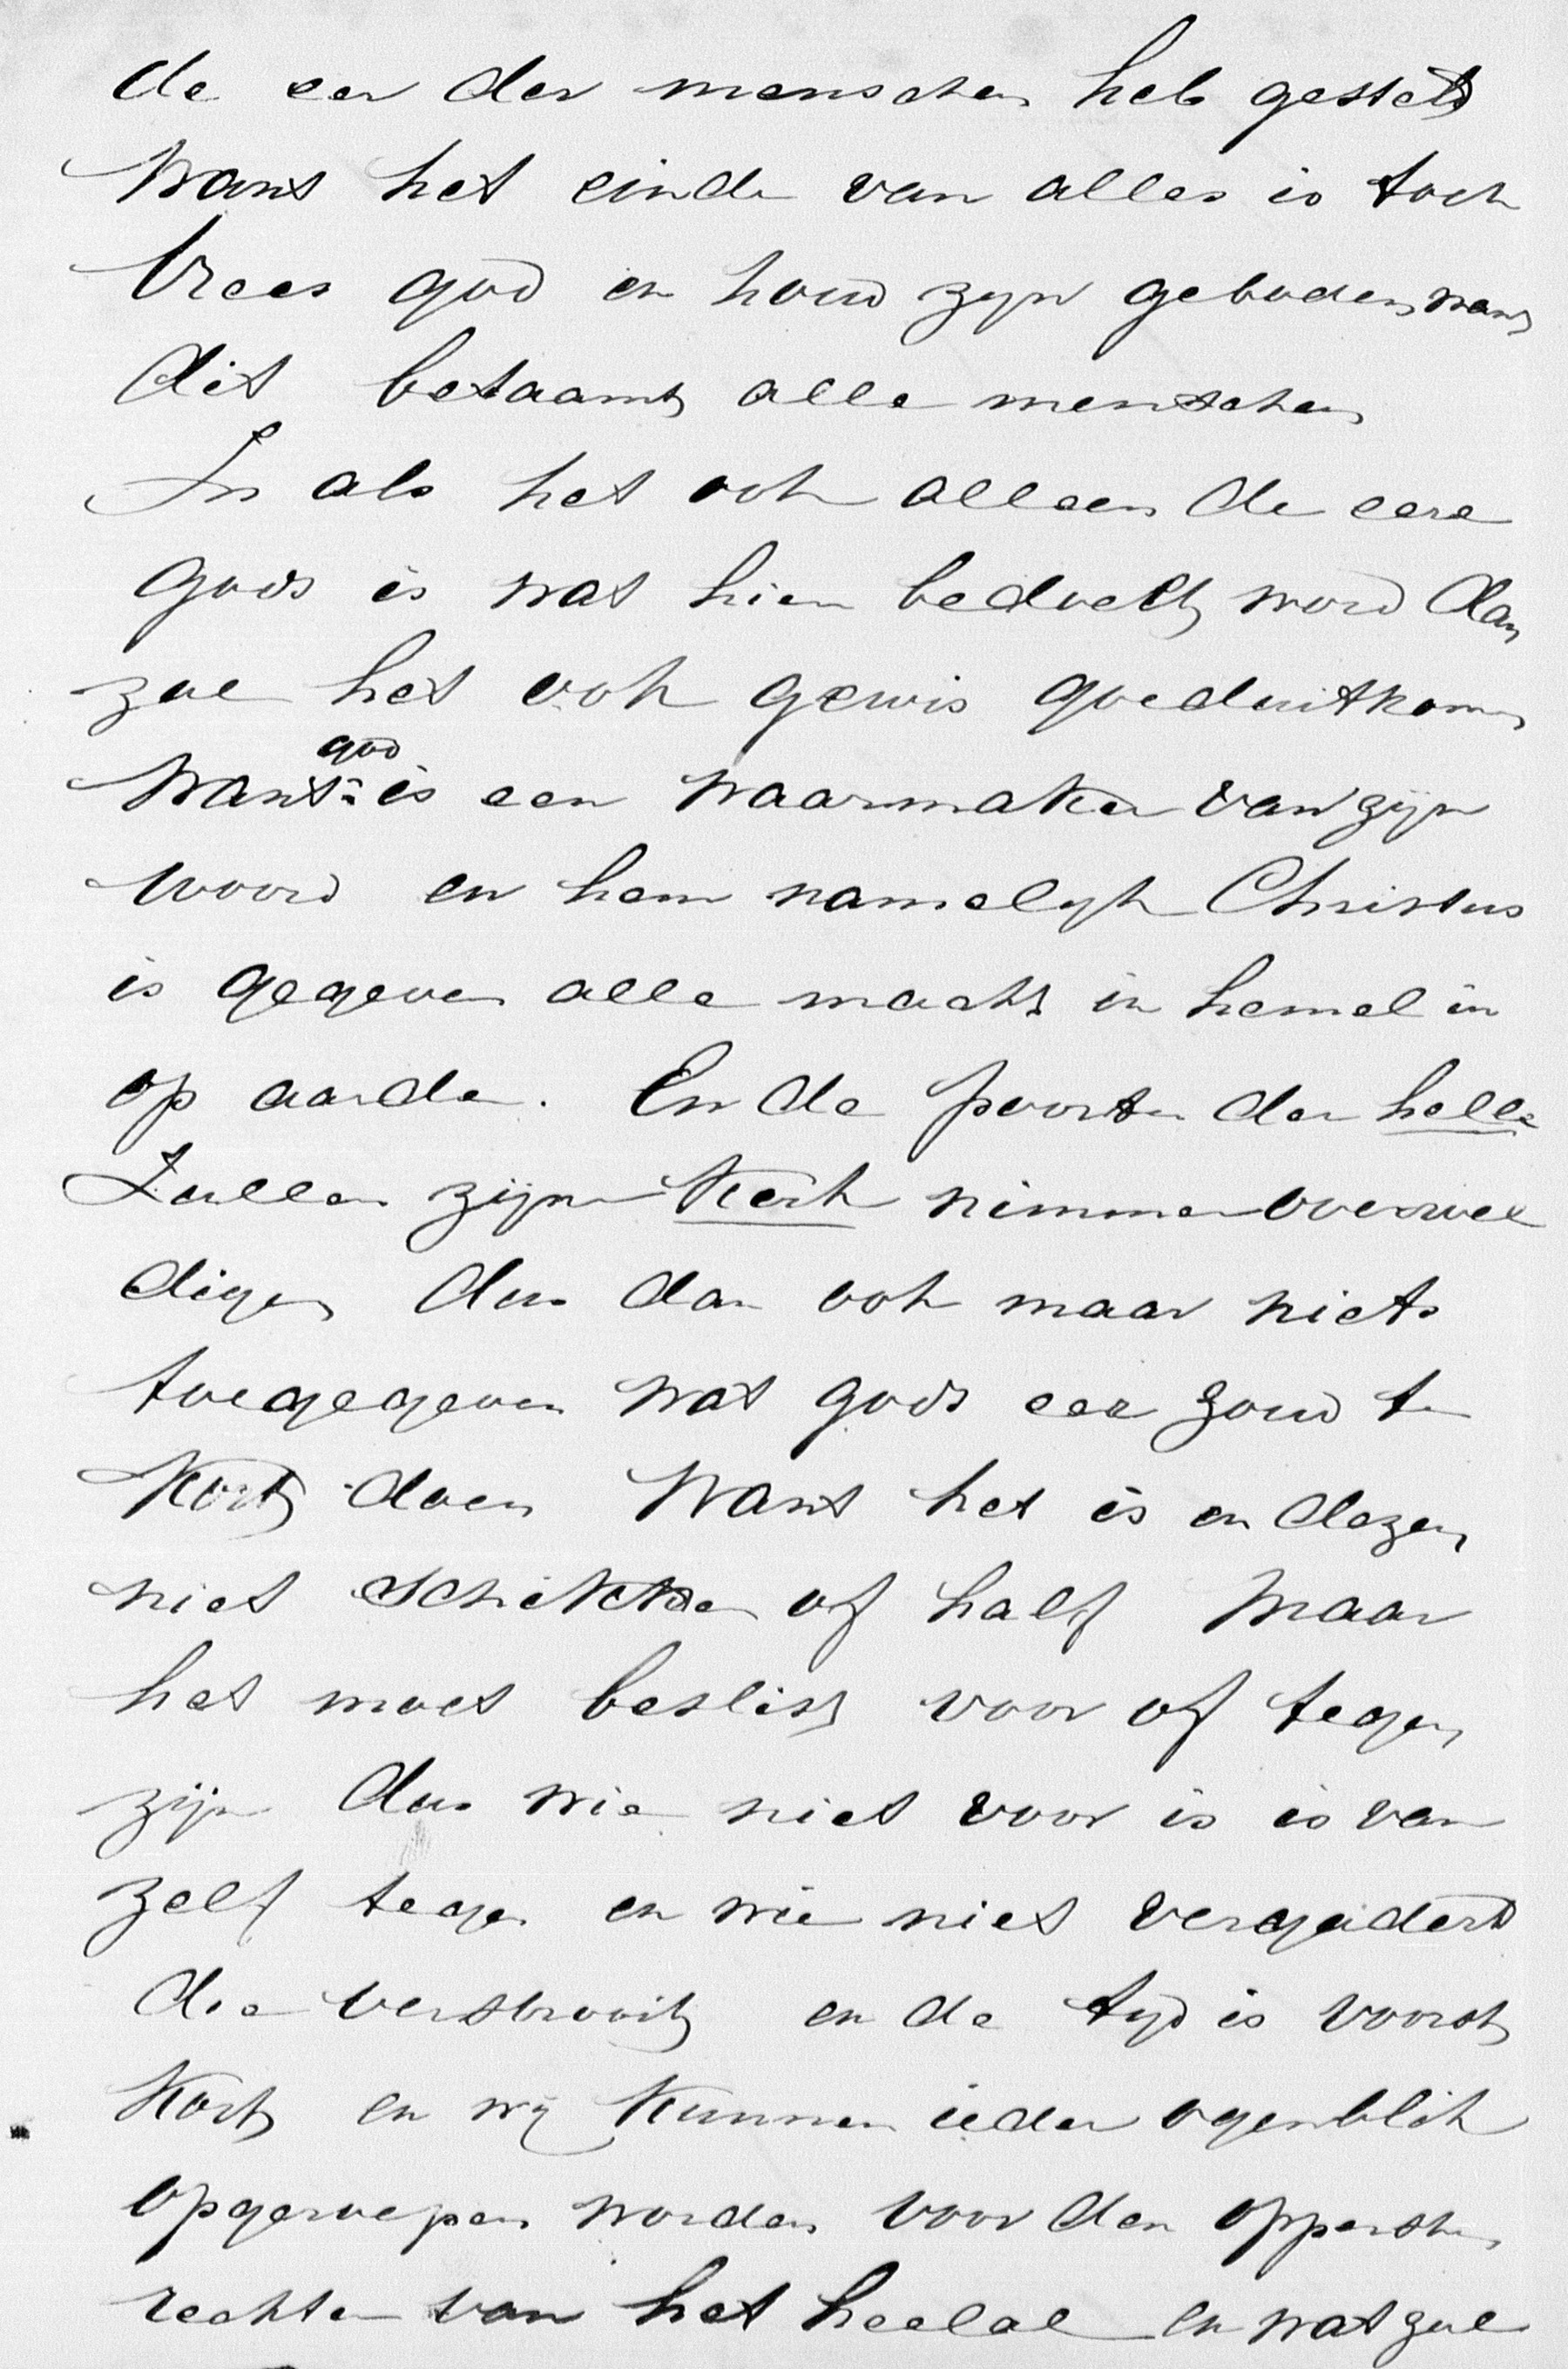 de eer der menschen heb gesteld
Want het einde van alles is toch
Vrees god en houd zyn geboden want
dit betaamt alle menschen
En als het ook alleen de eere
gods is wat hier bedoelt word dan
zal het ook gewis goeduitkomen
Want god is een waarmaker van zijn
woord en hem namelyk Christus
is gegeven alle macht in hemel in
op aarde. En de poorten der helle
Zullen zijn Kerk nimmer overwel
digen dus dan ook maar niets
toegegeven wat gods eer zoud te
Kort doen Want het is en dezen
niet schikken of half Maar
het moet beslist voor of tegen
zijn dus wie niet voor is is van
zelf tegen en wie niet vergaderd
die verstrooit en de tyd is voorst
Kort en wij Kunnen ieder ogenblik
opgeroepen worden voor den oppersten
rechter van het heelal en wat zal